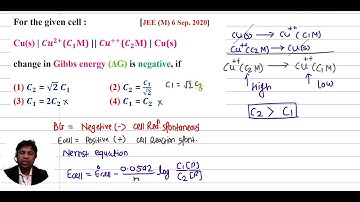 For the given cell : [JEE (M) 6 Sep. 2020]
Cu(s) | Cu²⁺(C₁M) || Cu⁺⁺(C₂M) | Cu(s)
change in Gibbs energy (ΔG) is negative, if
(1) C₂ = √2 C₁ (2) C₂ = C₁/√2 C₁ = √2 C₂
(3) C₁ = 2C₂ × (4) C₁ = C₂ ×
ΔG = Negative (-) cell Rxⁿ spontaneous
Ecell = Positive (+) cell Reaction spont.
Nernst equation
Ecell = E°cell - 0.0592/n log C₁[P]/C₂[R]
Cu(s) → Cu⁺⁺(C₁M)
Cu⁺⁺(C₂M) → Cu(s)
Cu⁺⁺(C₂M) → Cu⁺⁺(C₁M)
High Low
C₂ > C₁